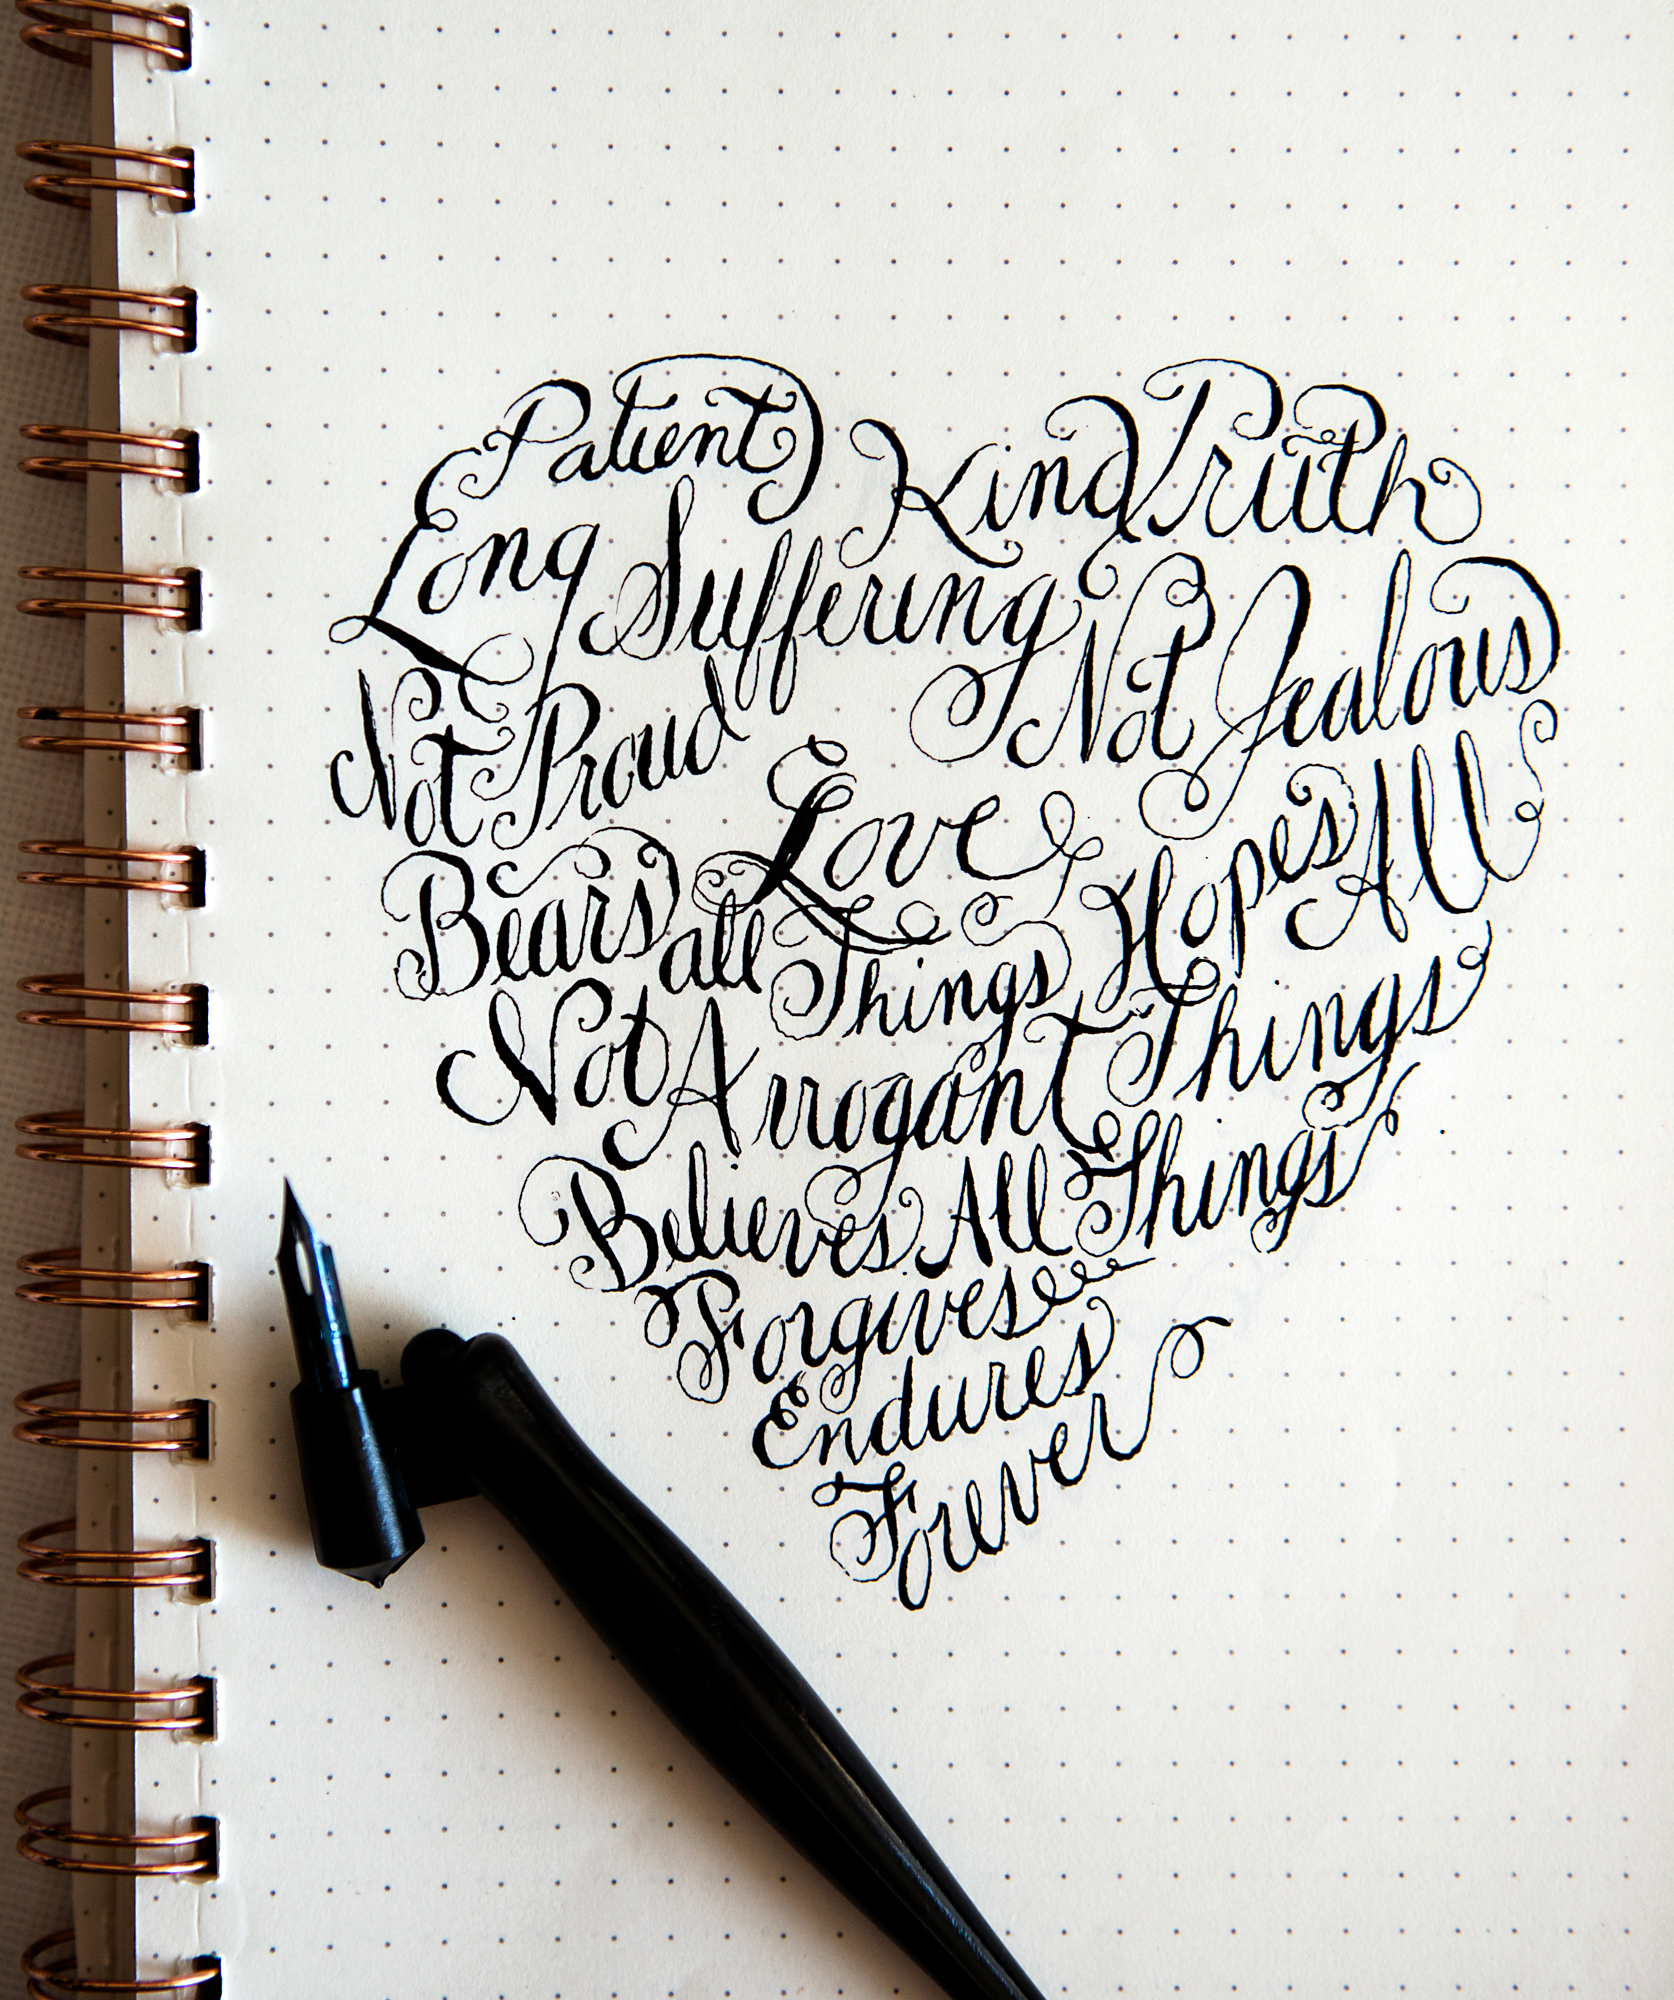 Patient Kind Truth
Long Suffering Not Jealous
Not Proud Love Hopes All
Bears all Things Things
Not Arrogant
Believes All Things
Forgives
Endures
Forever